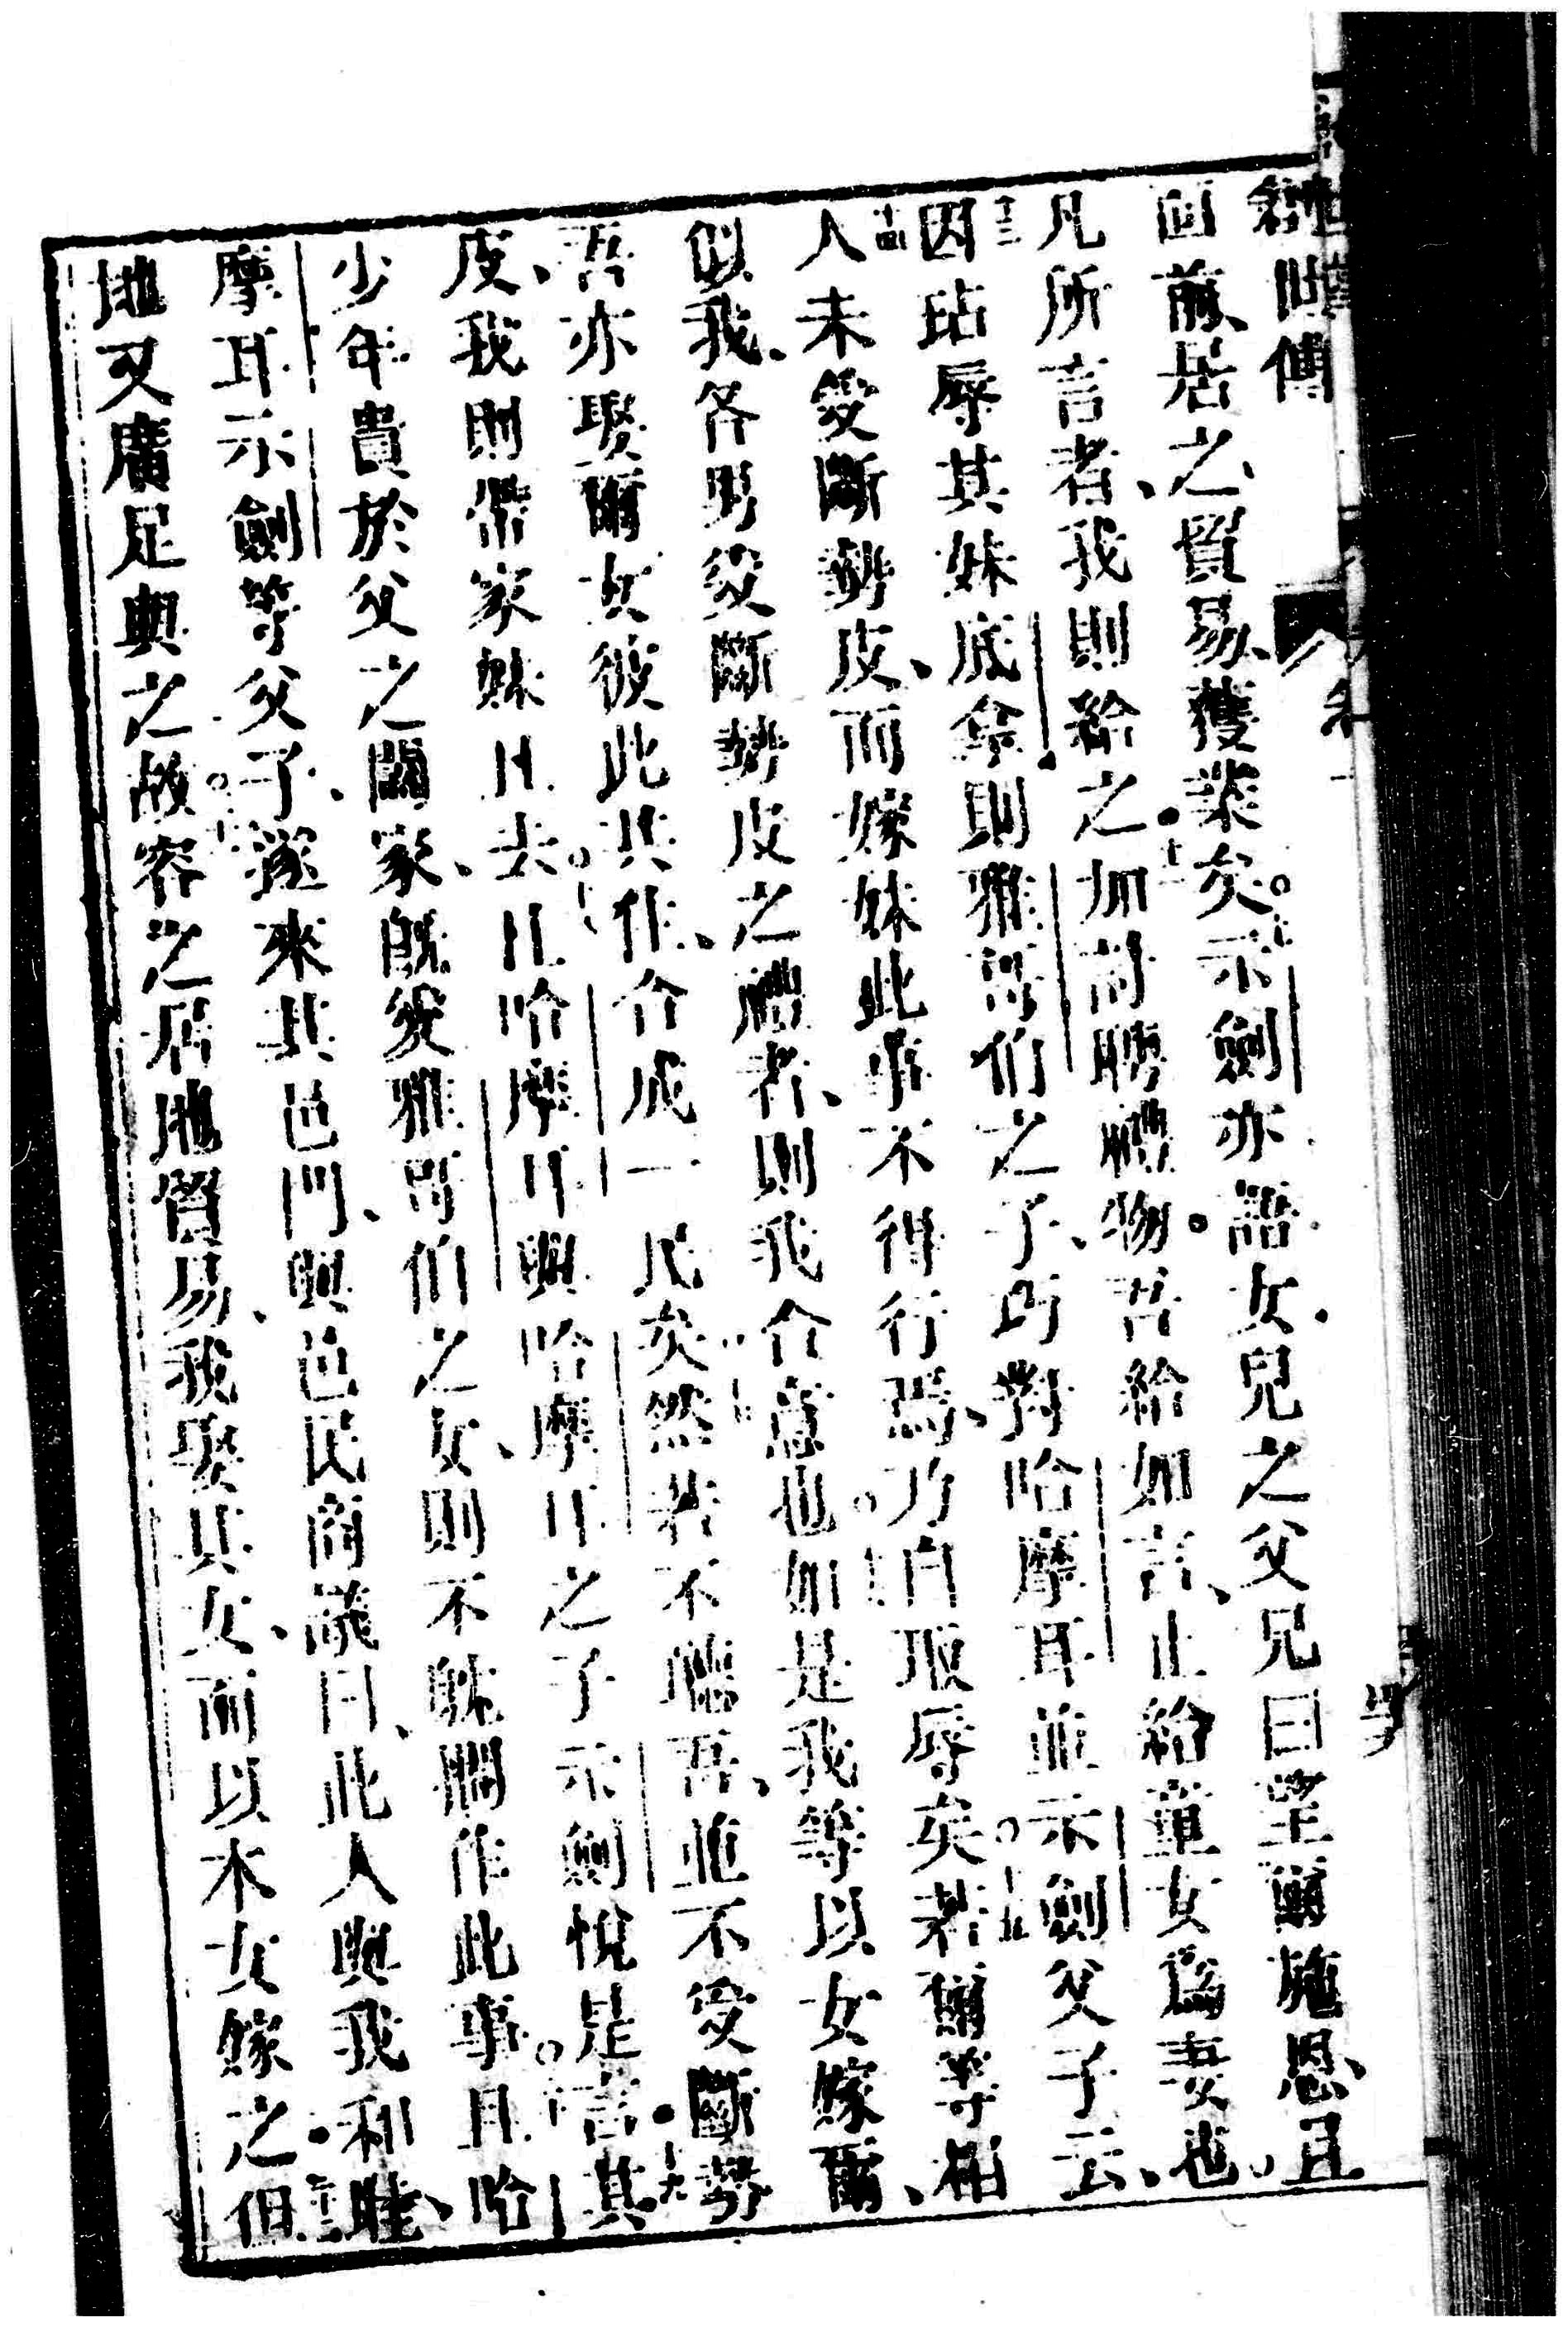 時傳
面前、居之、貿易、獲業矣。十一示劍亦語女兒之父兄曰望爾施恩、且
凡所言者、我則給之。十二加討聘禮物。吾給如言、止給童女爲妻也。
十三因玷辱其妹底拿則雅哥伯之子、巧對哈摩耳並示劍父子云、
十四人未受斷勢皮、而嫁妹此事不得行焉、乃自取辱矣。十五若爾等相
似我、各男受斷勢皮之禮者、則我合意也。十六如是我等以女嫁爾、
吾亦娶爾女彼此共住、合成一民矣。十七然若不聽吾、並不受斷勢
皮、我則帶家妹且去。十八且哈摩耳與哈摩耳之子示劍悅是言。十九其
少年貴於父之闔家、既愛雅哥伯之女、則不躭擱作此事。二十且哈
摩耳示劍等父子、遂來其邑門、與邑民商議曰、此人與我和睦、
地又廣足與之故容之居地貿易、我娶其女、而以本女嫁之。但